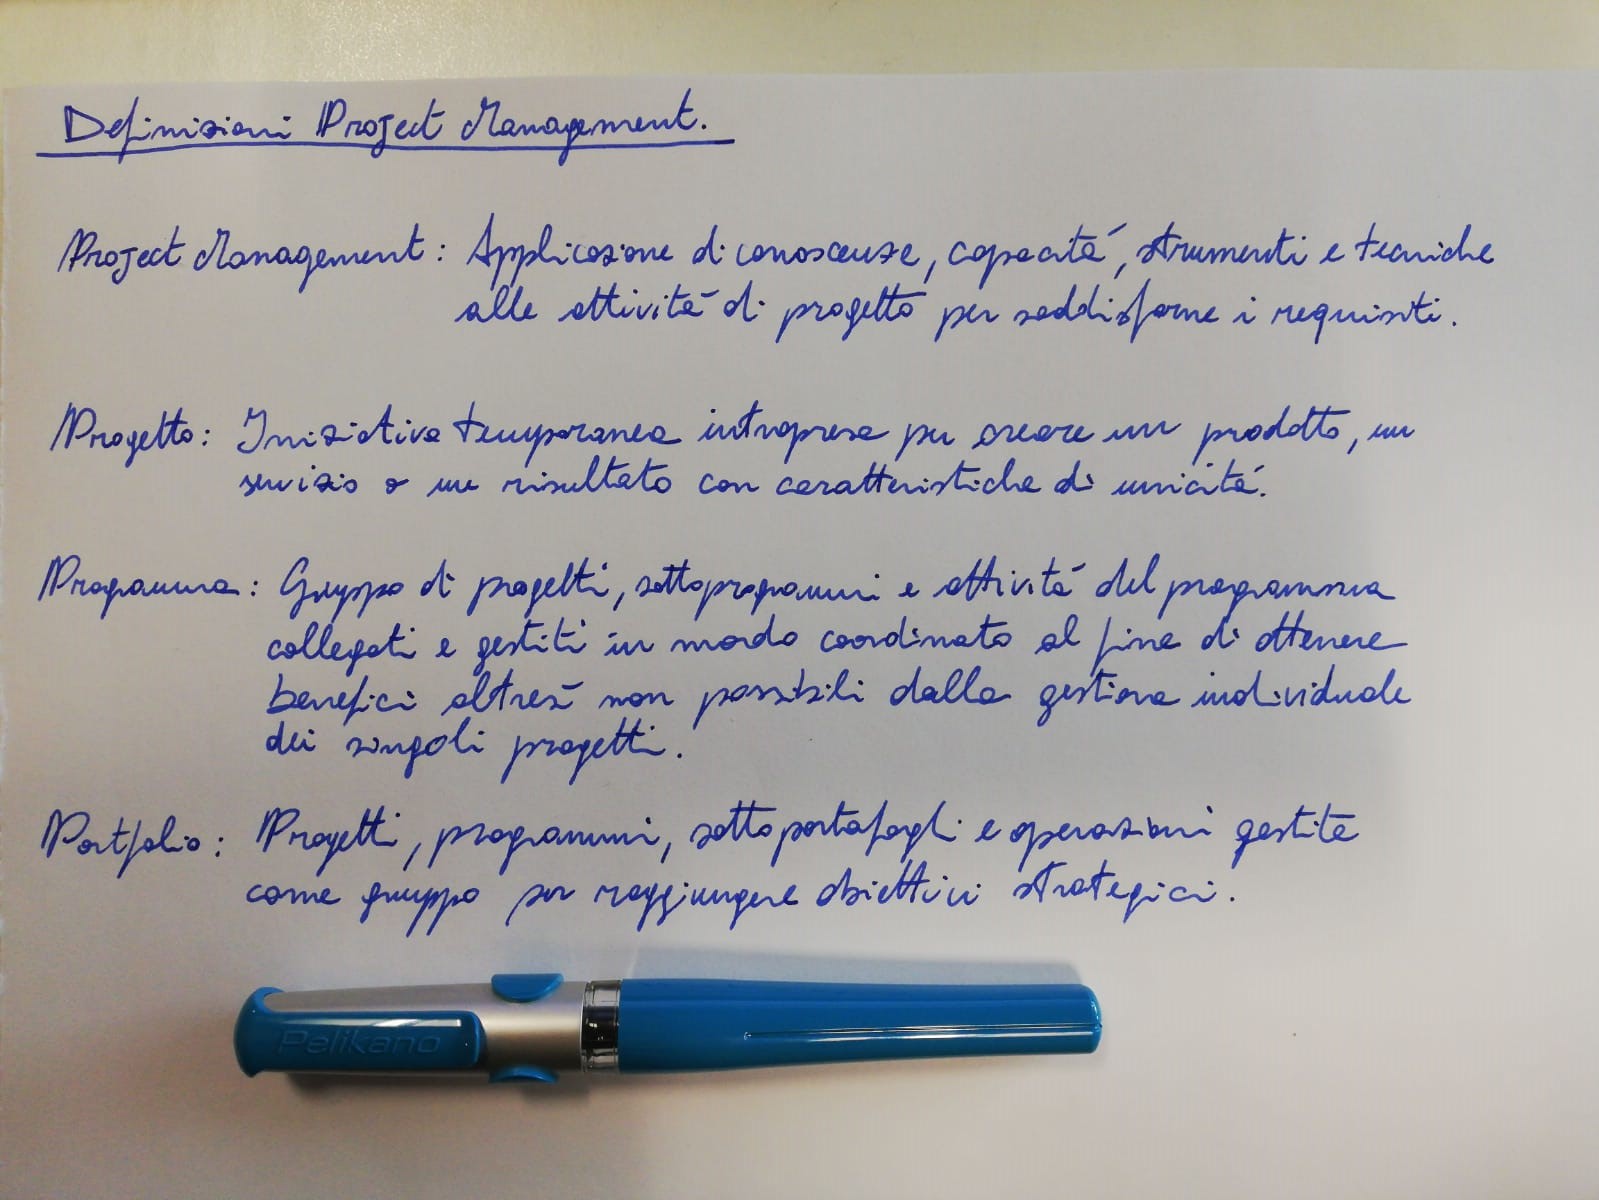 Definizioni Project Management.
Project Management: Applicazione di conoscenze, capacità, strumenti e tecniche
alle attività di progetto per soddisfarne i requisiti.
Progetto: Iniziativa temporanea intrapresa per creare un prodotto, un
servizio o un risultato con caratteristiche di unicità.
Programma: Gruppo di progetti, sottoprogrammi e attività del programma
collegati e gestiti in modo coordinato al fine di ottenere
benefici altresì non possibili dalla gestione individuale
dei singoli progetti.
Portfolio: Progetti, programmi, sottoportafogli e operazioni gestite
come gruppo per raggiungere obiettivi strategici.
Pelikano